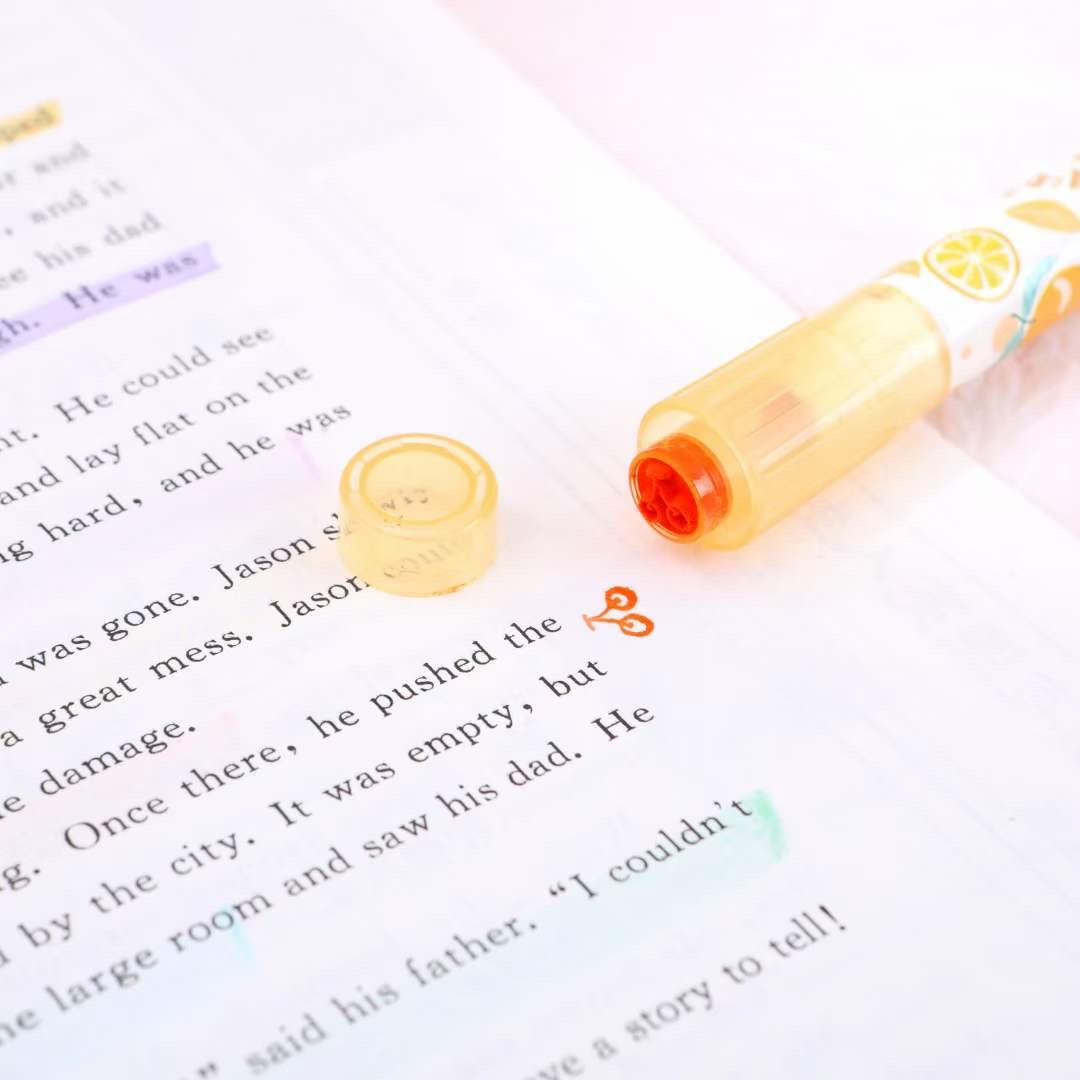 and
, and it
his dad
gh. He was
nt. He could see
and lay flat on the
hard, and he was
was gone. Jason
a great mess. Jason
damage.
Once there, he pushed the
by the city. It was empty, but
large room and saw his dad. He
" said his father. "I couldn't
a story to tell!